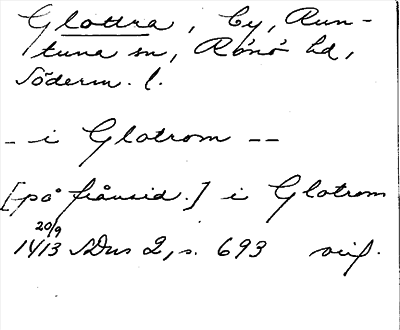 Glottra, by, Run-
tuna sn, Rönö hd,
Söderm. l.
_ i Glotrom _ _
[på frånsid.] i Glotrom
20/9
1413 SDns 2, s. 693